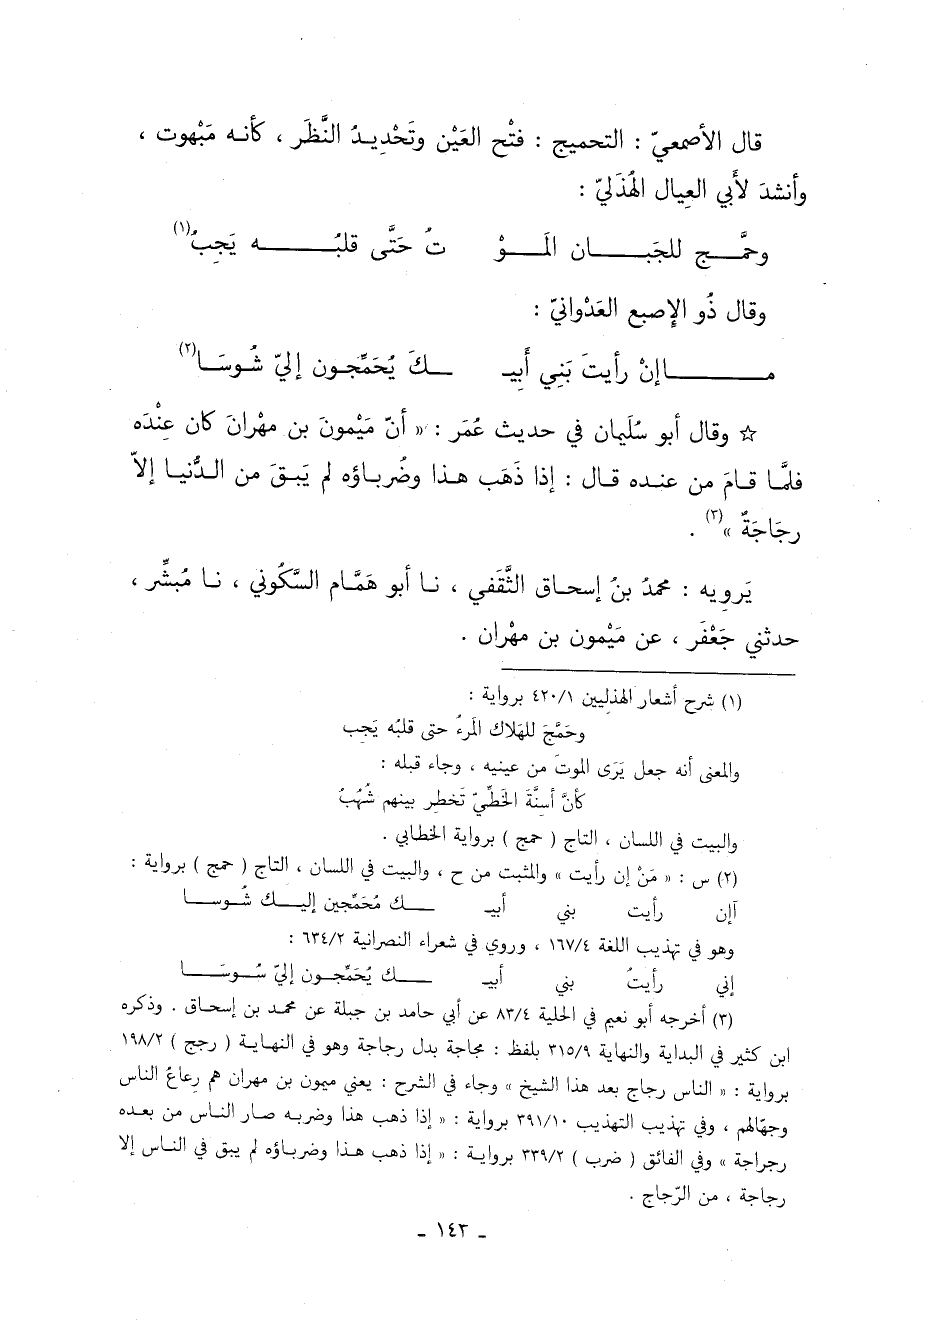 قال الأصمعيّ : التحميج : فتْح العَيْن وتَحْديدُ النَّظَر ، كأنه مَبْهوت ،
وأنشدَ لأَبي العيال الهُذَليّ :
وحمَّـــج للجَبـــــان المـــوْ تُ حَتَّى قلبُـــــــه يَجبُ(١)
وقال ذُو الإصبع العَدْوانيّ :
مـــــــاإنْ رأيتَ بَنِي أَبيـ ـــكَ يُحَمِّجون إليّ شُوسَـا(٢)
☆ وقال أبو سُلَيمان في حديث عُمَر : « أنّ مَيْمونَ بن مهْرانَ كان عِنْدَه
فلمَّا قـامَ من عنـده قـال : إذا ذَهَب هـذا وضُربـاؤه لم يَبـقَ من الـدُّنيـا إلاّ
رجَاجَةٌ »(٣) .
يَرويه : محمدُ بنُ إسحـاق الثَّقَفي ، نـا أبو هَمَّام السَّكُوني ، نـا مُبشِّر ،
حدثني جَعْفَر ، عن مَيْمون بن مهْران .
(١) شرح أشعار الهذليين ٤٢٠/١ برواية :
وحَمَّجَ للهَلاك المَرءُ حتى قلبُه يَجب
والمعنى أنه جعل يَرَى الموتَ من عينيه ، وجاء قبله :
كأنَّ أسنَّةَ الخَطِّيّ تَخطر بينهم شُهُبُ
والبيت في اللسان ، التاج ( حمج ) برواية الخطابي .
(٢) س : « مَنْ إن رأيت » والمثبت من ح ، والبيت في اللسان ، التاج ( حمج ) برواية :
آإن رأيت بني أبيـ ـــك مُحَمِّجين إليـــك شُوسـا
وهو في تهذيب اللغة ١٦٧/٤ ، وروي في شعراء النصرانية ٦٣٤/٢ :
إني رأيتُ بني أبيـ ـــك يُحَمِّجـون إليّ شُوسَـا
(٣) أخرجه أبو نعيم في الحلية ٨٣/٤ عن أبي حامد بن جبلة عن محمد بن إسحاق . وذكره
ابن كثير في البداية والنهاية ٣١٥/٩ بلفظ : مجاجة بدل رجاجة وهو في النهاية ( رجج ) ١٩٨/٢
برواية : « الناس رجاج بعد هذا الشيخ » وجاء في الشرح : يعني ميمون بن مهران هم رعاعُ الناس
وجهّالهم ، وفي تهذيب التهذيب ٣٩١/١٠ برواية : « إذا ذهب هذا وضربه صار الناس من بعده
رجراجة » وفي الفائق ( ضرب ) ٣٣٩/٢ بروايـة : « إذا ذهب هـذا وضربـاؤه لم يبق في النـاس إلا
رجاجة ، من الرّجاج .
ـ ١٤٣ ـ